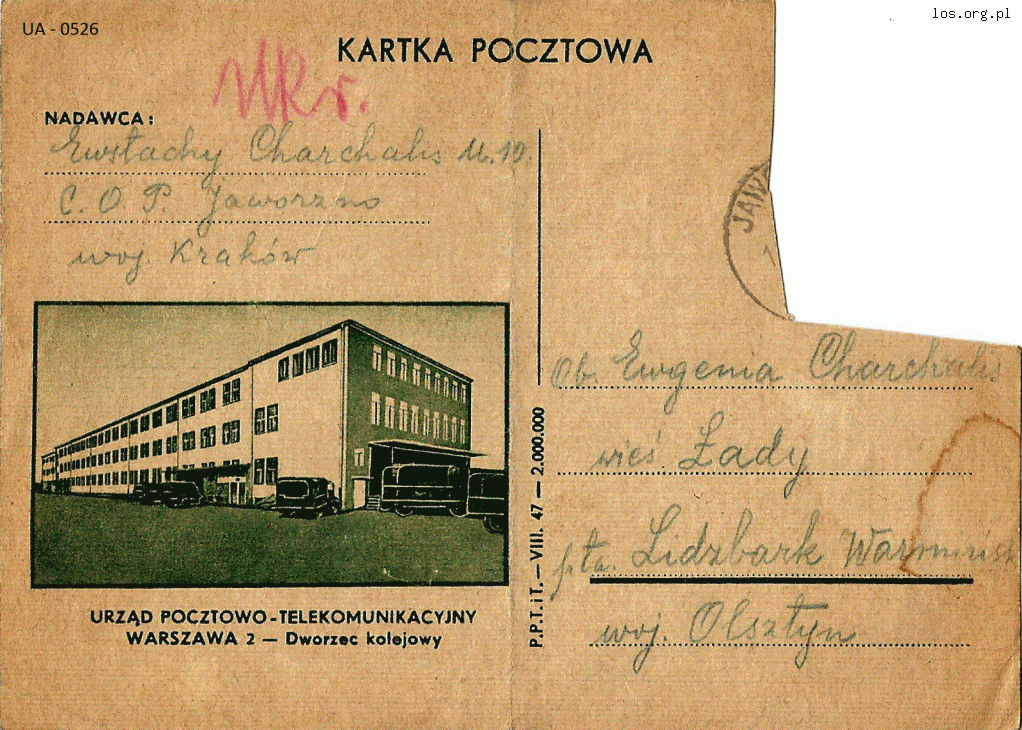 UA - 0526
los.org.pl
KARTKA POCZTOWA
Ukr.
NADAWCA:
Ewstachy Charchalis U. 10.
C. O. P. Jaworzno
woj. Kraków
JAW
Ob. Ewgenia Charchalis
wieś Łady
pta. Lidzbark Warmińsk
woj. Olsztyn
P.P.T.iT. — VIII. 47 — 2.000.000
URZĄD POCZTOWO-TELEKOMUNIKACYJNY
WARSZAWA 2 — Dworzec kolejowy